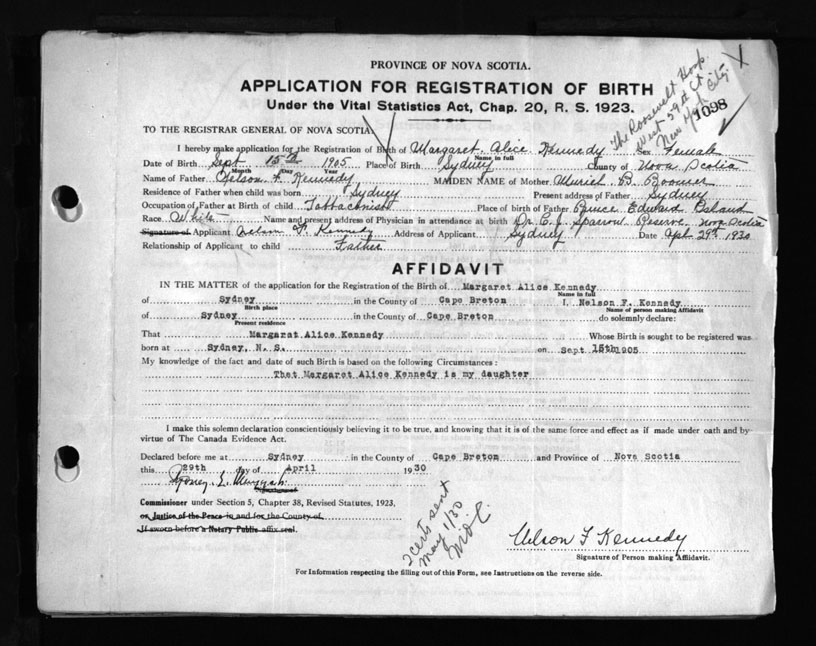 PROVINCE OF NOVA SCOTIA.
APPLICATION FOR REGISTRATION OF BIRTH
Under the Vital Statistics Act, Chap. 20, R. S. 1923.
The Roosevelt Hosp.
West - 59th St
New York City.
X
1098
TO THE REGISTRAR GENERAL OF NOVA SCOTIA
I hereby make application for the Registration of Birth of Margaret Alice Kennedy Sex Female
Name in full
Date of Birth Sept 15th 1905 Place of Birth Sydney County of Nova Scotia
Month Day Year
Name of Father Nelson F. Kennedy MAIDEN NAME of Mother Muriel B. Boomer
Residence of Father when child was born Sydney Present address of Father Sydney
Occupation of Father at Birth of child Tobacconist Place of birth of Father Prince Edward Island
Race White Name and present address of Physician in attendance at birth Dr. E. J. Sparrow Reserve Nova Scotia
Signature of Applicant Nelson F. Kennedy Address of Applicant Sydney Date Apl. 29th 1930
Relationship of Applicant to child Father
AFFIDAVIT
IN THE MATTER of the application for the Registration of the Birth of Margaret Alice Kennedy
Name in full
of Sydney in the County of Cape Breton I, Nelson F. Kennedy
Birth place Name of person making Affidavit
of Sydney in the County of Cape Breton do solemnly declare:
Present residence
That Margarat Alice Kennedy Whose Birth is sought to be registered was
born at Sydney, N. S. on Sept 15th 1905
My knowledge of the fact and date of such Birth is based on the following Circumstances :
That Margaret Alice Kennedy is my daughter
I make this solemn declaration conscientiously believing it to be true, and knowing that it is of the same force and effect as if made under oath and by
virtue of The Canada Evidence Act.
Declared before me at Sydney in the County of Cape Breton and Province of Nova Scotia
this 29th day of April 1930
Commissioner under Section 5, Chapter 38, Revised Statutes, 1923.
or Justice of the Peace in and for the County of
If sworn before a Notary Public affix seal.
2 certs sent
May 1/30
Nelson F Kennedy
Signature of Person making Affidavit.
For Information respecting the filling out of this Form, see Instructions on the reverse side.